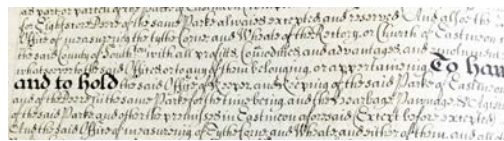 as parte parcell of the
for Eight or Deere of the same Parke alwaies excepted and reserved And alsoe the
Office of measuringe the tythe Corne and Wheate of the Rectory, or Church of Eastmeon in
the said County of South with all profitts, Comodities, and advantages, and
whatsoever to the said Offices or to any of them belonging, or appertaininge To hau
and to hold the said Office of Keeper, and Keeping of the said Parke of Eastmeon
and of the Deere in the same Parke for the time being, and the Pawnage
of the said Parke and other the premisses in Eastmeon aforesaid Except before excepted
And the said Office of measuring of Tythe Corne, and Wheate, and either of them, and all